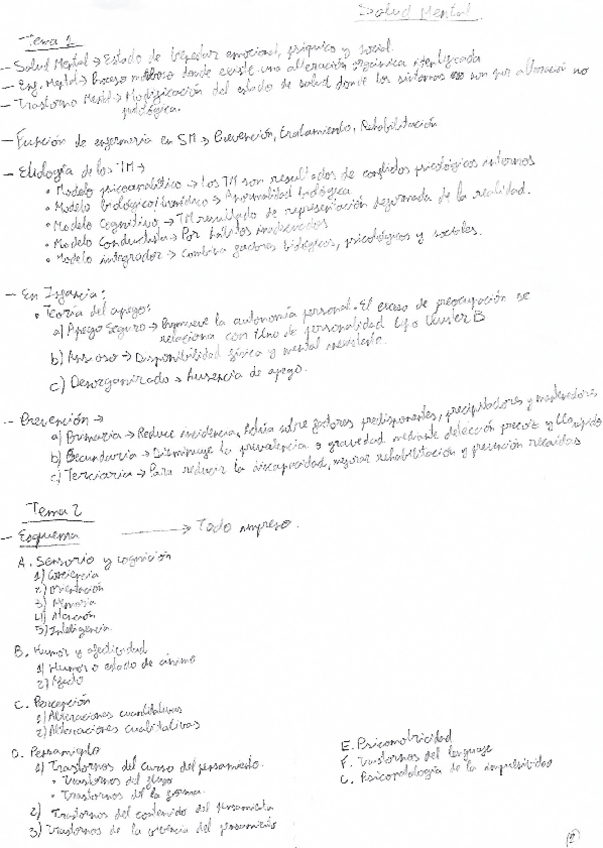 Salud Mental
Tema 1
- Salud Mental → Estado de bienestar emocional, psíquico y social.
- Enf. Mental → Proceso morboso donde existe una alteración orgánica identificada
- Trastorno Mental → Modificación del estado de salud donde los síntomas son por alteración no patológica.
- Función de enfermería en SM → Prevención, tratamiento, Rehabilitación
- Etiología de los TM →
• Modelo psicoanalítico → Los TM son resultados de conflictos psicológicos internos
• Modelo biológico/biomédico → Anormalidad biológica
• Modelo Cognitivo → TM resultado de representación deformada de la realidad.
• Modelo Conductista → Por hábitos inadecuados
• Modelo integrador → Combina factores biológicos, psicológicos y sociales.
- En Infancia:
• Teoría del apego:
a) Apego Seguro → Promueve la autonomía personal. El exceso de preocupación se
relaciona con de personalidad tipo Cluster B
b) Ansioso → Disponibilidad física y mental inexistente.
c) Desorganizado → Ausencia de apego.
- Prevención →
a) Primaria → Reduce incidencia. Actúa sobre factores predisponentes, precipitadores y mantenedores
b) Secundaria → Disminuye la prevalencia y gravedad mediante detección precoz y rápido
c) Terciaria → Para reducir la discapacidad, mejorar rehabilitación y prevención recaídas
Tema 2
- Esquema → Todo impreso.
A. Sensorio y cognición
1) Conciencia
2) Orientación
3) Memoria
4) Atención
5) Inteligencia
B. Humor y afectividad
1) Humor o estado de ánimo
2) Afecto
C. Percepción
1) Alteraciones cuantitativas
2) Alteraciones cualitativas
D. Pensamiento
1) Trastornos del curso del pensamiento.
• Trastornos del flujo
• Trastornos de la forma.
2) Trastornos del contenido del pensamiento
3) Trastornos de la vivencia del pensamiento
E. Psicomotricidad
F. Trastornos del lenguaje
G. Psicopatología de la impulsividad